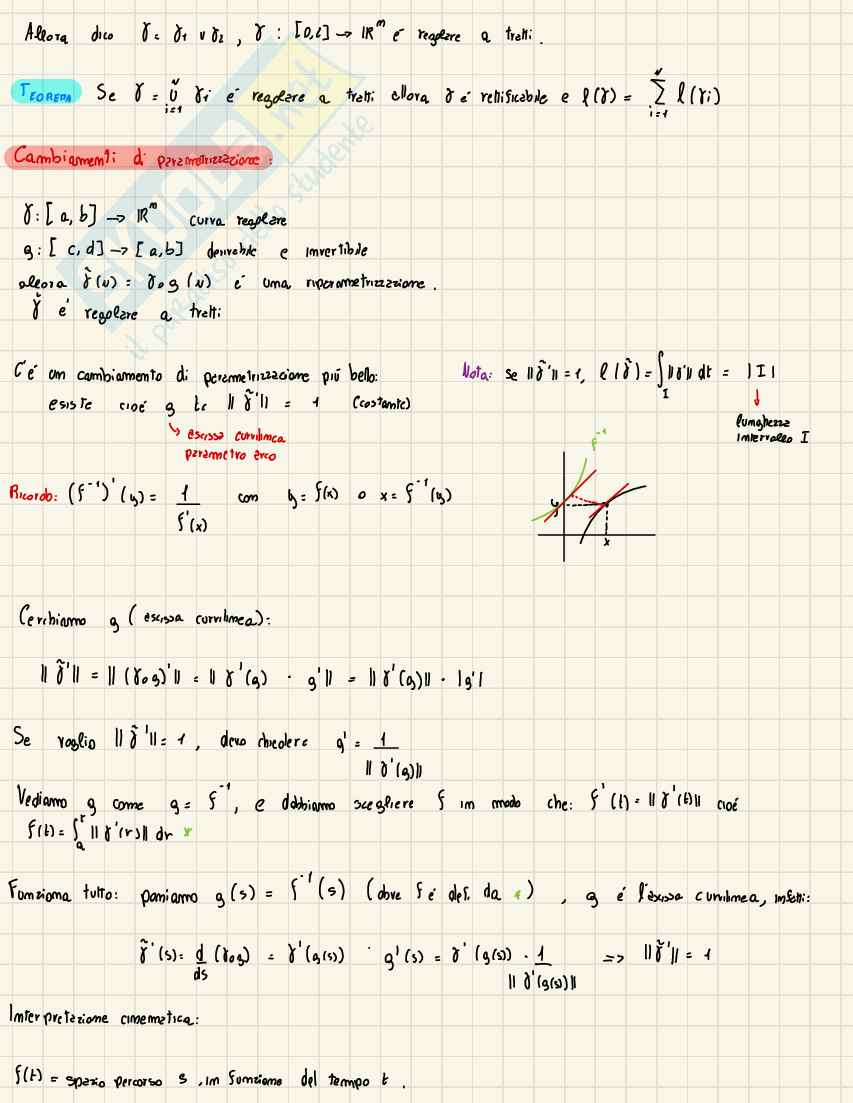 Allora dico γ = γ₁ ∪ γ₂ , γ : [0,l] → ℝᵐ é regolare a tratti .
TEOREMA Se γ = ∪ᵢ₌₁ᵛ γi é regolare a tratti allora γ é rettificabile e l(γ) = Σᵢ₌₁ᵛ l(γi)
Cambiamenti di parametrizzazione :
γ : [a, b] → ℝᵐ curva regolare
g : [c, d] → [a, b] derivabile e invertibile
allora γ̃(u) = γ∘g(u) é una riparametrizzazione .
γ̃ é regolare a tratti
C'é un cambiamento di parametrizzazione piú bello:
esiste cioé g tc ||γ̃'|| = 1 (costante)
↳ ascissa curvilinea
parametro arco
Nota: se ||γ̃'|| = 1, l(γ̃) = ∫_I ||γ'|| dt = |I|
↓
lunghezza
intervallo I
Ricordo: (f⁻¹)'(y) = 1/f'(x) con y = f(x) o x = f⁻¹(y)
f⁻¹
y
x
Cerchiamo g (ascissa curvilinea):
||γ̃'|| = ||(γ∘g)'|| = ||γ'(g) · g'|| = ||γ'(g)|| · |g'|
Se voglio ||γ̃'|| = 1, devo chiedere g' = 1/||γ'(g)||
Vediamo g come g = f⁻¹, e dobbiamo scegliere f in modo che: f'(t) = ||γ'(t)|| cioé
f(t) = ∫ₐᵗ ||γ'(r)|| dr *
Funziona tutto: poniamo g(s) = f⁻¹(s) (dove f é def. da *) , g é l'ascissa curvilinea, infatti:
γ̃'(s) = d/ds (γ∘g) = γ'(g(s)) · g'(s) = γ'(g(s)) · 1/||γ'(g(s))|| => ||γ̃'|| = 1
Interpretazione cinematica:
f(t) = spazio percorso s , in funzione del tempo t .
SKUOLA.net
il paradiso dello studente